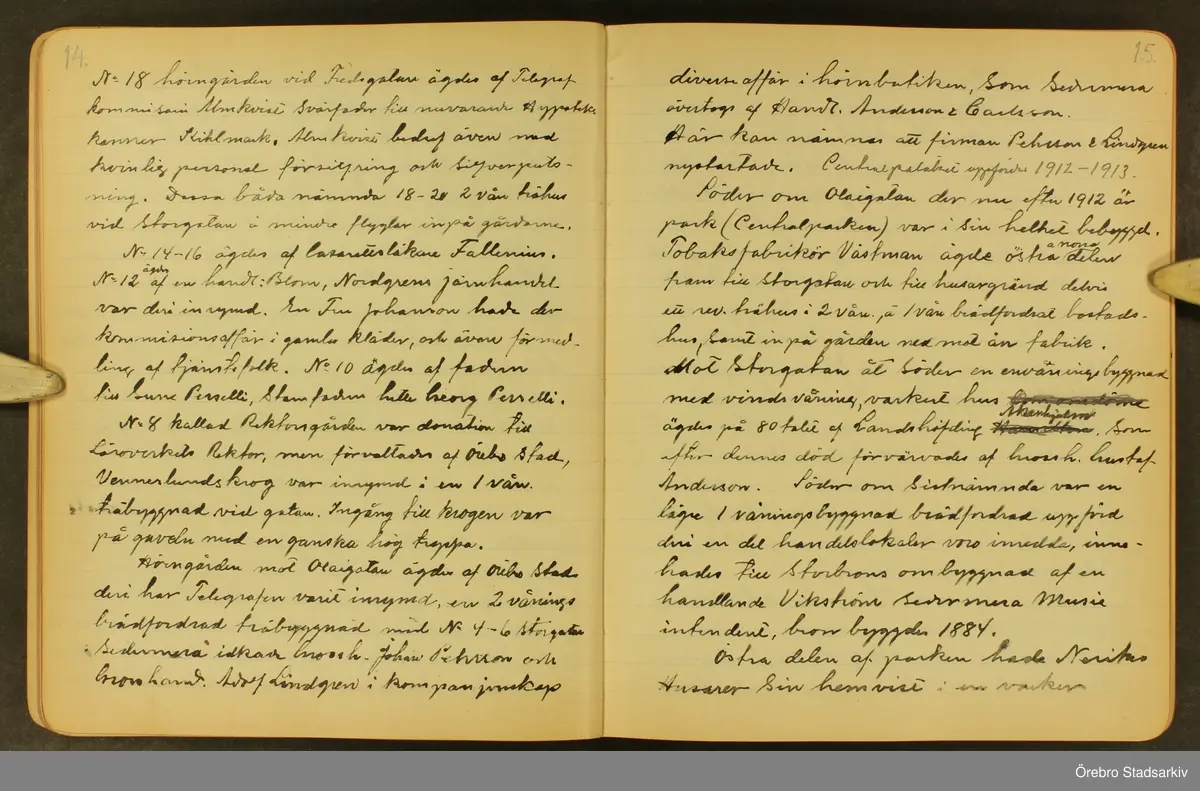 14.
No 18 hörngården vid Fredsgatan ägdes af Telegraf
kommisarie Almkvist Svärfader till nuvarande Apotek
Kihlmark. Almkvist bedref även med
kvinlig personal försilfring och silfverputs-
ning. Dessa båda nämnda 18-20 2 vån trähus
vid Storgatan å mindre flyglar inpå gårdarne.
No 14-16 ägdes af lasarettsläkare Fallenius.
No 12 ägdes af en handl: Blom, Nordgrens järnhandel
var deri inrymd. En Fru Johanson hade der
kommisionsaffär i gamla kläder, och även förmed-
ling af tjänstefolk. No 10 ägdes af fadern
till Perselli, Stamfadern hette Georg Perselli.
No 8 kallad Rektorsgården var donation till
Läroverkets Rektor, men förvaltades af Örebo Stad,
Vennerlundskrog var inrymd i en 1 vån.
träbyggnad vid gatan. Ingång till krogen var
på gaveln med en ganska hög trappa.
Hörngården mot Olaigatan ägdes af Örebo Stad
deri har Telegrafen varit inrymd, en 2 vånings
brädfordrad träbyggnad med No 4-6 Storgatan
Sedermera idkade Grossh. Johan Pehrsson och
Grosshand. Adolf Lindgren i kompanjonskap
15.
diverse affär i hörnbutiken, Som Sedermera
övertogs af Handl. Anderson & Carlsson.
Här kan nämnas att firman Pehrson & Lindgren
nystartade. Centralpalatset uppfördes 1912-1913.
Söder om Olaigatan der nu efter 1912 är
park (Centralparken) var i Sin helhet bebyggd.
Tobaksfabrikör Västman ägde östra a norra delen
fram till Storgatan och till husargränd delvis
ett rev. trähus i 2 vån., å 1 vån brädfordrat bostads-
hus, Samt inpå gården ned mot ån fabrik.
Mot Storgatan åt Söder en envåningsbyggnad
med vindsvåning, varkert hus
ägdes på 80 talet af Landshöfding Akerhjelm. Som
efter dennes död förvärvades af Grossh. Gustaf
Anderson. Söder om Sistnämnda var en
lägre 1 våningsbyggnad brädfordrad uppförd
deri en del handelslokaler voro inredda, inne-
hades till Storbrons ombyggnad af en
handlande Vikström Sedermera Musie
intendent, bron byggdes 1884.
Östra delen af parken hade Nerikes
Husarer Sin hemvist i en
Örebro Stadsarkiv